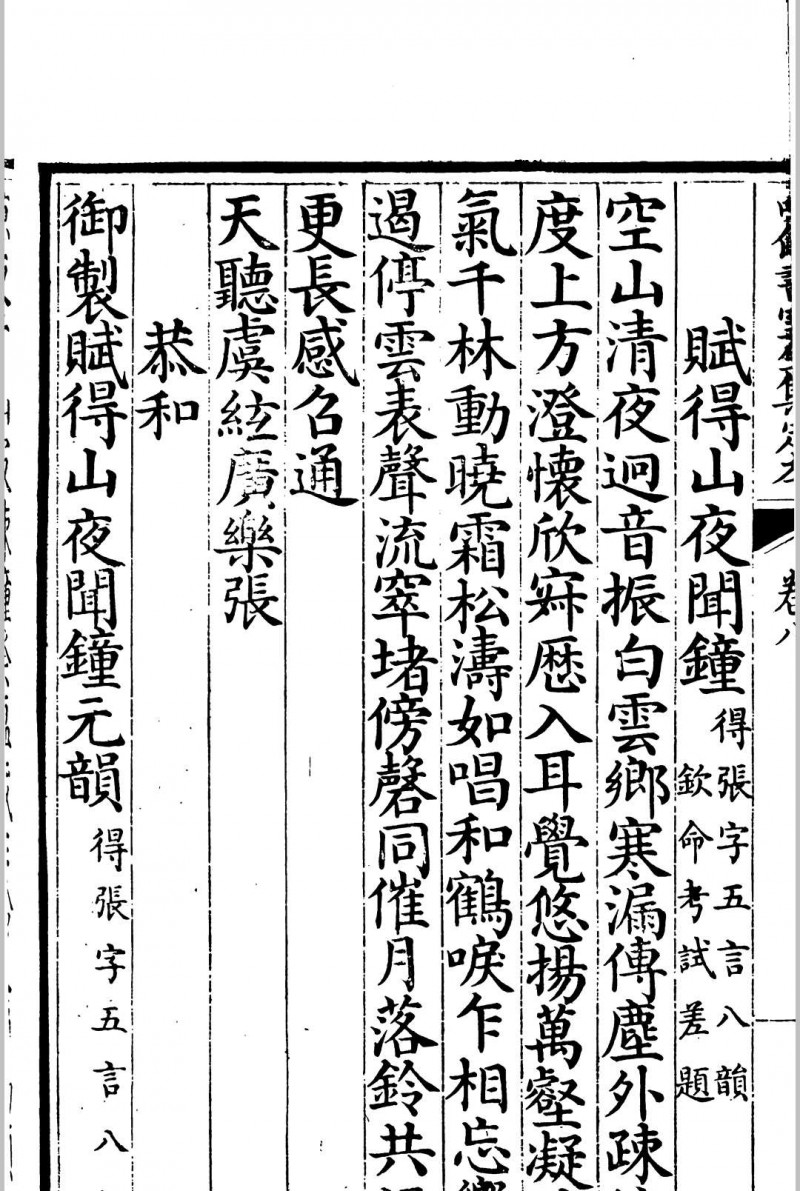 卷八
賦得山夜聞鐘得張字五言八韻欽命考試差題
空山清夜迥音振白雲鄉寒漏傳塵外疎
度上方澄懷欣寂歷入耳覺悠揚萬壑凝
氣千林動曉霜松濤如唱和鶴唳乍相忘響
遏停雲表聲流窣堵傍磬同催月落鈴共
更長感召通
天聽虞絃廣樂張
恭和
御製賦得山夜聞鐘元韻得張字五言八